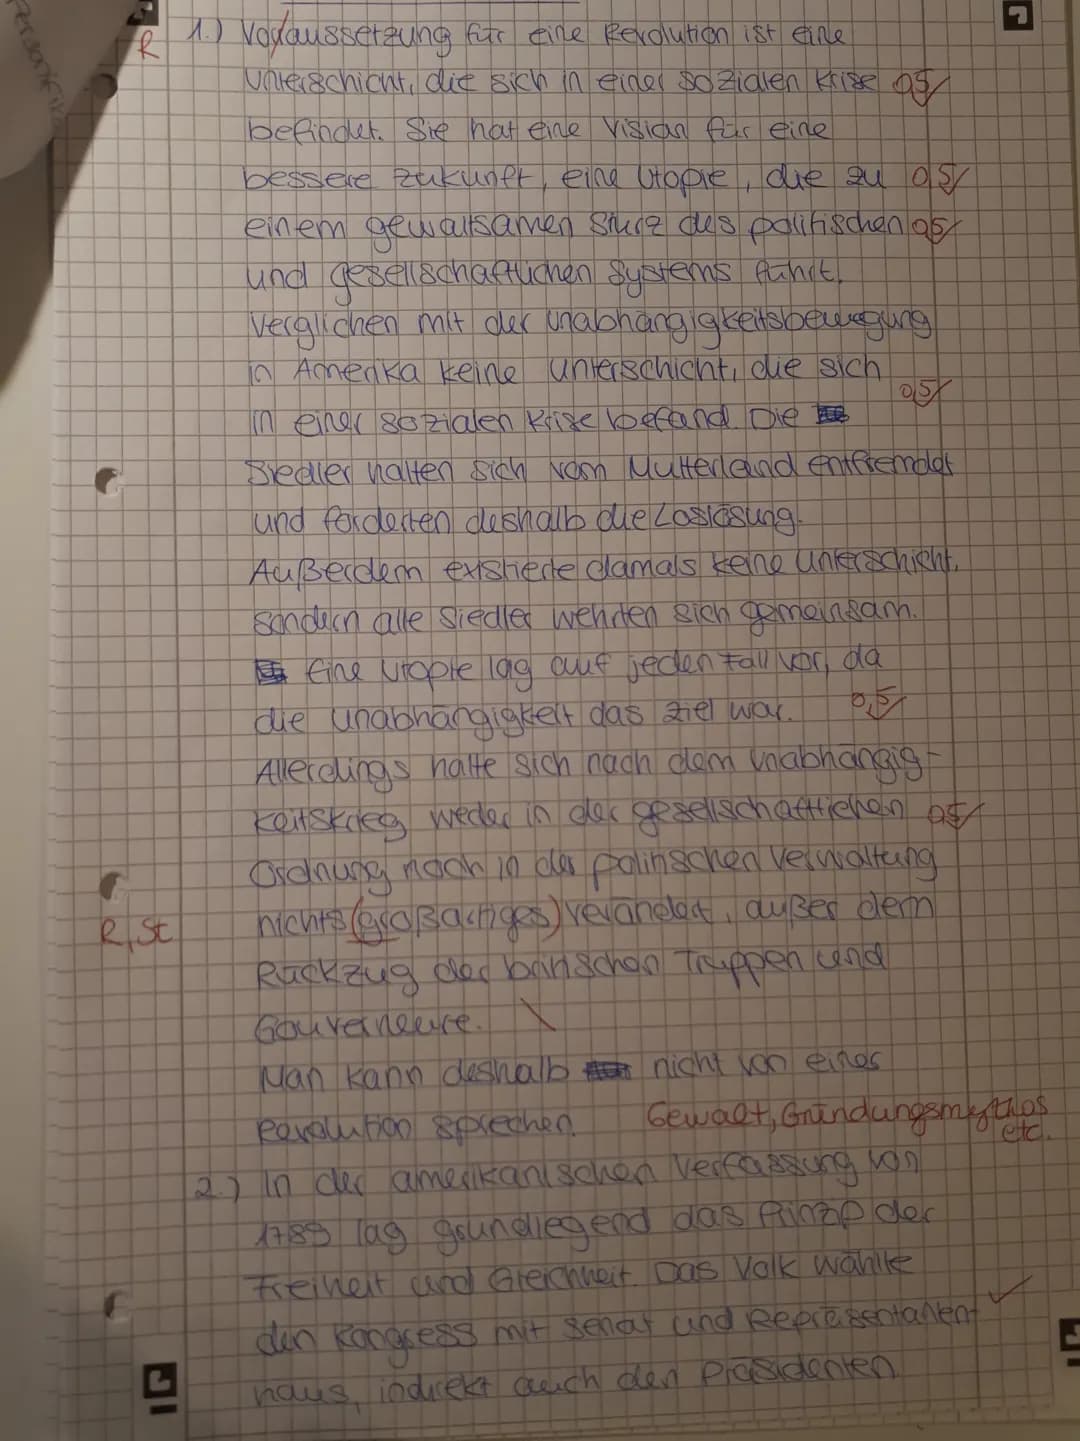 R 1.) Voraussetzung für eine Revolution ist eine
Unterschicht, die sich in einer sozialen Krise 0,5/
befindet. Sie hat eine Vision für eine
bessere Zukunft, eine Utopie, die zu 0,5/
einem gewaltsamen Sturz des politischen 0,5/
und gesellschaftlichen Systems führt.
Verglichen mit der Unabhängigkeitsbewegung
in Amerika keine Unterschicht, die sich
0,5/
in einer sozialen Krise befand. Die
Siedler hatten sich vom Mutterland entfremdet
und forderten deshalb die Loslösung.
Außerdem existierte damals keine Unterschicht,
sondern alle Siedler wehrten sich gemeinsam.
Eine Utopie lag auf jeden Fall vor, da
die Unabhängigkeit das Ziel war. 0,5/
Allerdings hatte sich nach dem Unabhängig-
keitskrieg weder in der gesellschaftlichen 0,5/
Ordnung noch in der politischen Verwaltung
R, St nichts (großartiges) verändert, außer dem
Rückzug der britischen Truppen und
Gouverneure.
Man kann deshalb nicht von einer
Revolution sprechen. Gewalt, Gründungsmythos
etc.
2.) In der amerikanischen Verfassung von
1789 lag grundlegend das Prinzip der
Freiheit und Gleichheit. Das Volk wählte
den Kongress mit Senat und Repräsentanten-
haus, indirekt auch den Präsidenten